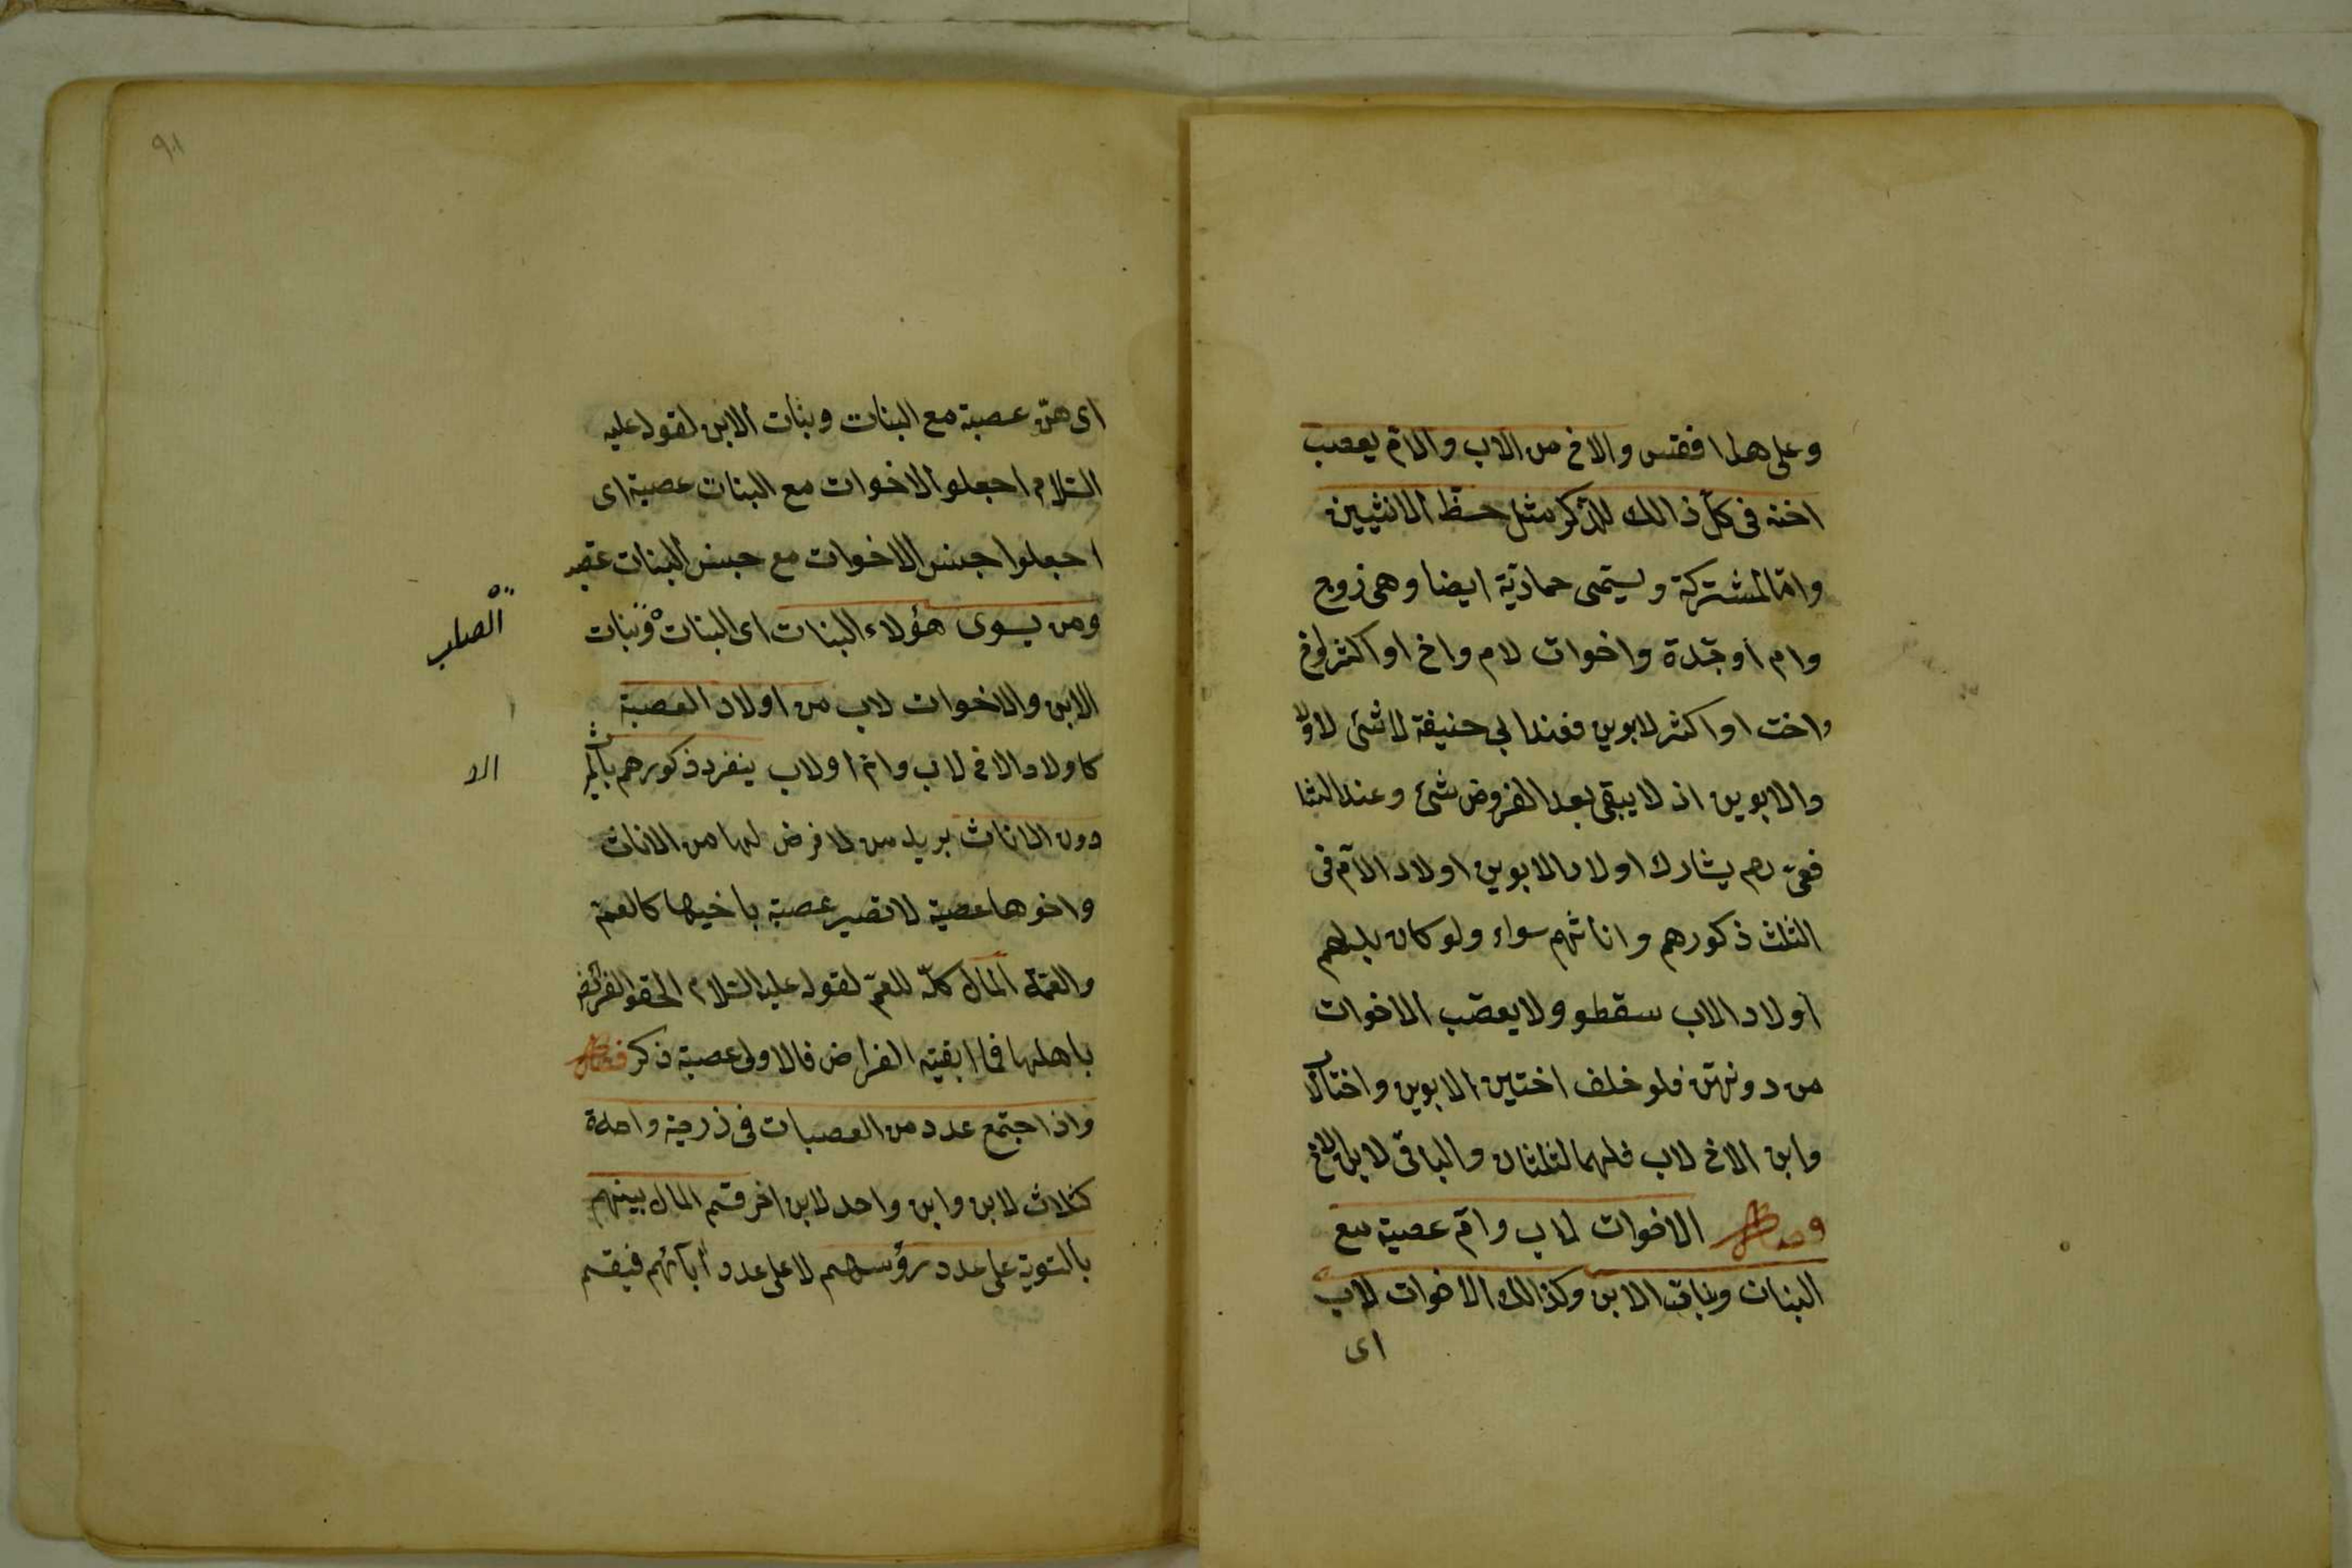 وعلى هذا فقس والاخ من الاب والام يعصب
اخته فى كل ذالك للذكر مثل حظ الانثيين
واما المشتركة ويسمى حمارية ايضا وهى زوج
وام او جدة واخوات لام واخ او اكثر لاخ
واخت او اكثر لابوين فعند ابي حنيفة لا شئ لاولا
والابوين اذ لا يبقى بعد الفروض شئ وعند الشا
فعى رحم يشارك اولاد الابوين اولاد الام فى
الثلث ذكورهم واناثهم سواء ولو كان بدلهم
اولاد الاب سقطو ولا يعصب الاخوات
من دونهن فلو خلف اختين الابوين واختا لاب
وابن الاخ لاب فلهما لثلثان والباقى لابن الاخ
الاخوات لاب وام عصبة مع
البنات وبنات الابن وكذالك الاخوات لاب
اى
٩١
اى هن عصبة مع البنات وبنات الابن لقوله عليه
السلام اجعلوا الاخوات مع البنات عصبة اى
اجعلوا جنس الاخوات مع جنس البنات عصبه
ومن يسوى هؤلاء البنات اى البنات وبنات
الصلب
الابن والاخوات لاب من اولاد العصبة
كاولاد الاخ لاب وام او لاب ينفرد ذكورهم بالميراث
الا
دون الاناث يريد من لا فرض لها من الاناث
واخوها عصبة لا تصير عصبة باخيها كالعم
والعمة المال كله للعم لقوله عليه السلام الحقو الفرائض
باهلها فما ابقيته الفرائض فالاولى عصبة ذكر
واذا اجتمع عدد من العصبات فى درجة واحدة
كثلاث لابن وابن واحد لابن اخر قسم المال بينهم
بالسوية على عدد رؤسهم لا على عدد آبائهم فيقسم